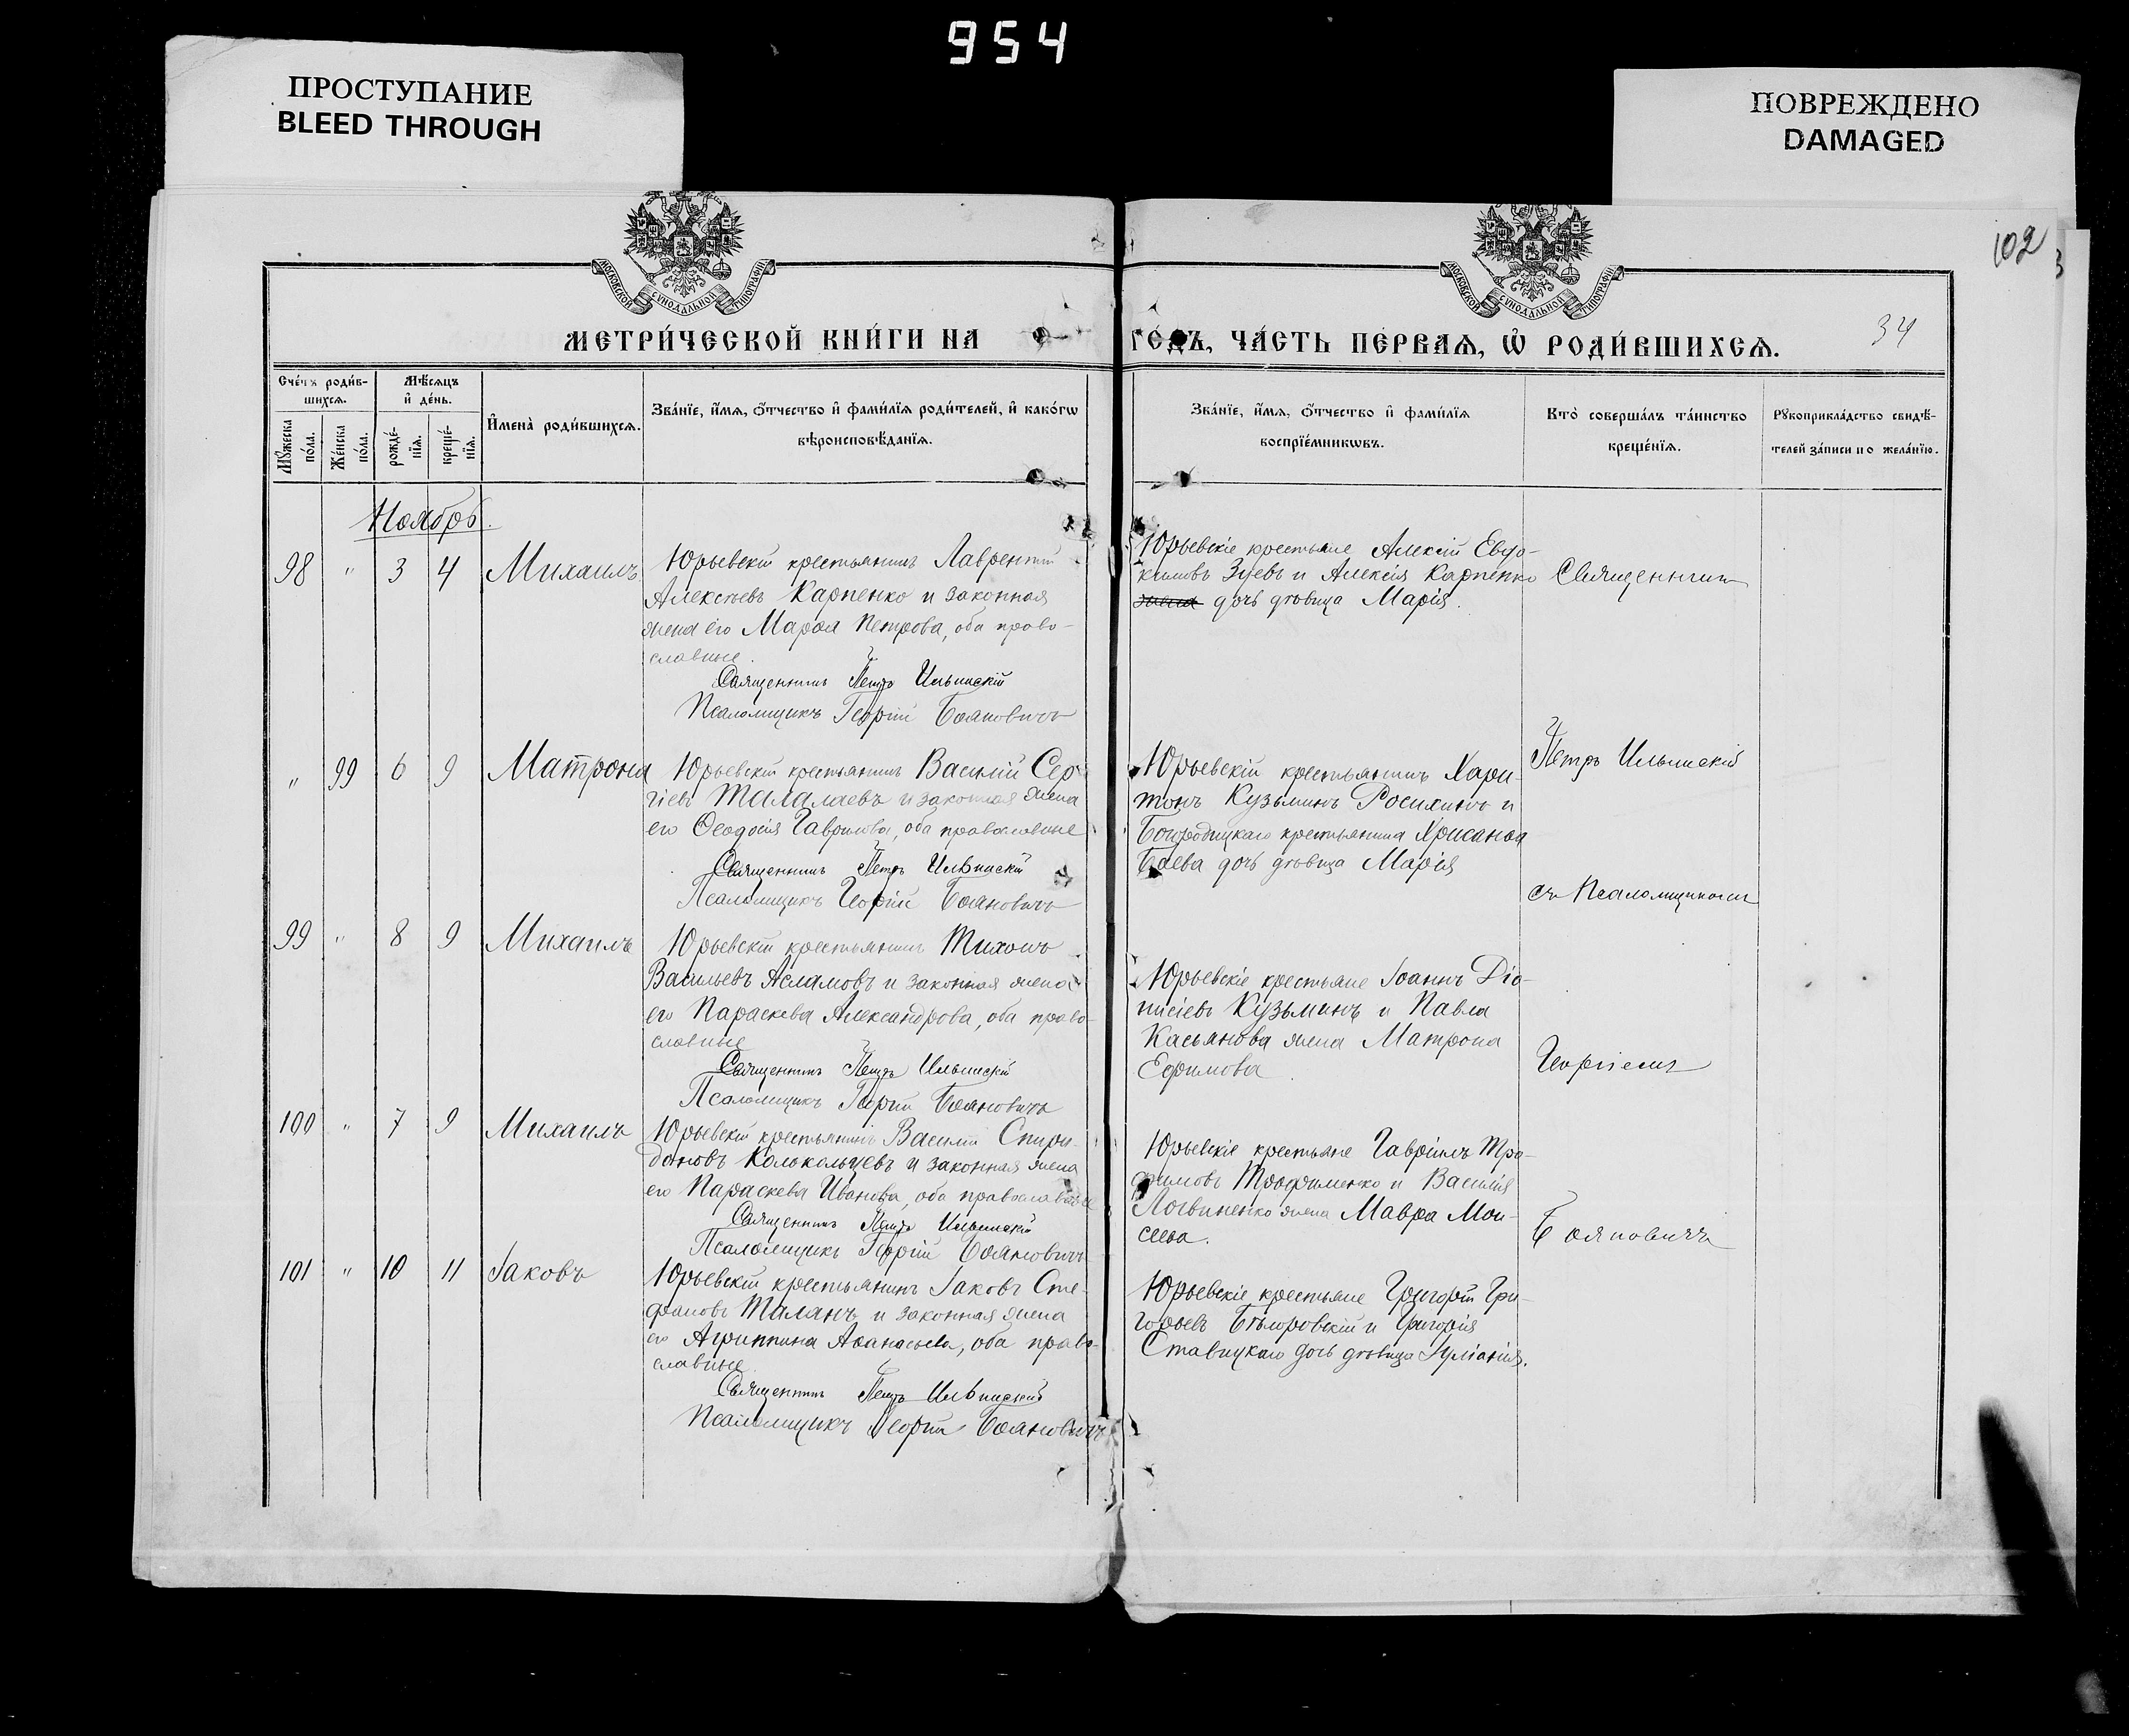 954
ПРОСТУПАНИЕ
BLEED THROUGH
ПОВРЕЖДЕНО
DAMAGED
102
34
МОСКОВСКОЙ СѴНОДАЛЬНОЙ ТИПОГРАФІИ
МОСКОВСКОЙ СѴНОДАЛЬНОЙ ТИПОГРАФІИ
МЕТРИ́ЧЕСКОЙ КНИ́ГИ НА ГО́ДЪ, ЧА́СТЬ ПЕ́РВАѦ, Ѡ҆ РОДИ́ВШИХСѦ.
Сче́тъ роди́в-
шихсѧ.
Мꙋ́жеска по́ла.
Же́нска по́ла.
Мѣ́сѧцъ
и҆ де́нь.
рожде́-нїѧ.
креще́-нїѧ.
И҆мена̀ роди́вшихсѧ.
Зва́нїе, и҆́мѧ, ѻ҆́тчество и҆ фами́лїѧ роди́телей, и҆ како́гѡ
вѣроисповѣ́данїѧ.
Зва́нїе, и҆́мѧ, ѻ҆́тчество и҆ фами́лїѧ
воспрїе́мникѡвъ.
Кто̀ соверша́лъ та́инство
креще́нїѧ.
Рꙋкоприкла́дство свидѣ́-
телей за́писи по жела́нїю.
Ноябрь.
98 " 3 4 Михаилъ
Юрьевскій крестьянинъ Лаврентій
Алексѣевъ Карпенко и законная
жена его Марѳа Петрова, оба право-
славные.
Священникъ Петръ Ильинскій
Псаломщикъ Георгій Бояновичъ
Юрьевскіе крестьяне Алексій Евдо-
кимовъ Зуевъ и Алексія Карпенко
жена дочь дѣвица Марія.
Священникъ
" 99 6 9 Матрона
Юрьевскій крестьянинъ Василій Сер-
гіевъ Талалаевъ и законная жена
его Ѳеодосія Гаврилова, оба православные
Священникъ Петръ Ильинскій
Псаломщикъ Георгій Бояновичъ
Юрьевскій крестьянинъ Хари-
тонъ Кузьминъ Росихинъ и
Богородицкаго крестьянина Хрисанѳа
Баева дочь дѣвица Марія
Петръ Ильинскій
съ Псаломщикомъ
99 " 8 9 Михаилъ
Юрьевскій крестьянинъ Тихонъ
Васильевъ Асламовъ и законная жена
его Параскева Александрова, оба право-
славные
Священникъ Петръ Ильинскій
Псаломщикъ Георгій Бояновичъ
Юрьевскіе крестьяне Іоаннъ Діо-
нисіевъ Кузьминъ и Павла
Касьянова жена Матрона
Ефимова.
Георгіемъ
100 " 7 9 Михаилъ
Юрьевскій крестьянинъ Василій Спири-
доновъ Колокольцевъ и законная жена
его Параскева Иванова, оба православные
Священникъ Петръ Ильинскій
Псаломщикъ Георгій Бояновичъ
Юрьевскіе крестьяне Гавріилъ Тро-
фимовъ Трофименко и Василія
Логвиненко жена Мавра Мои-
сеева.
Бояновичъ
101 " 10 11 Іаковъ
Юрьевскій крестьянинъ Іаковъ Сте-
фановъ Таланъ и законная жена
его Агриппина Аѳанасьева, оба право-
славные.
Священникъ Петръ Ильинскій
Псаломщикъ Георгій Бояновичъ
Юрьевскіе крестьяне Григорій Гри-
горьевъ Бѣлоровскій и Григорія
Ставицкаго дочь дѣвица Іуліанія.